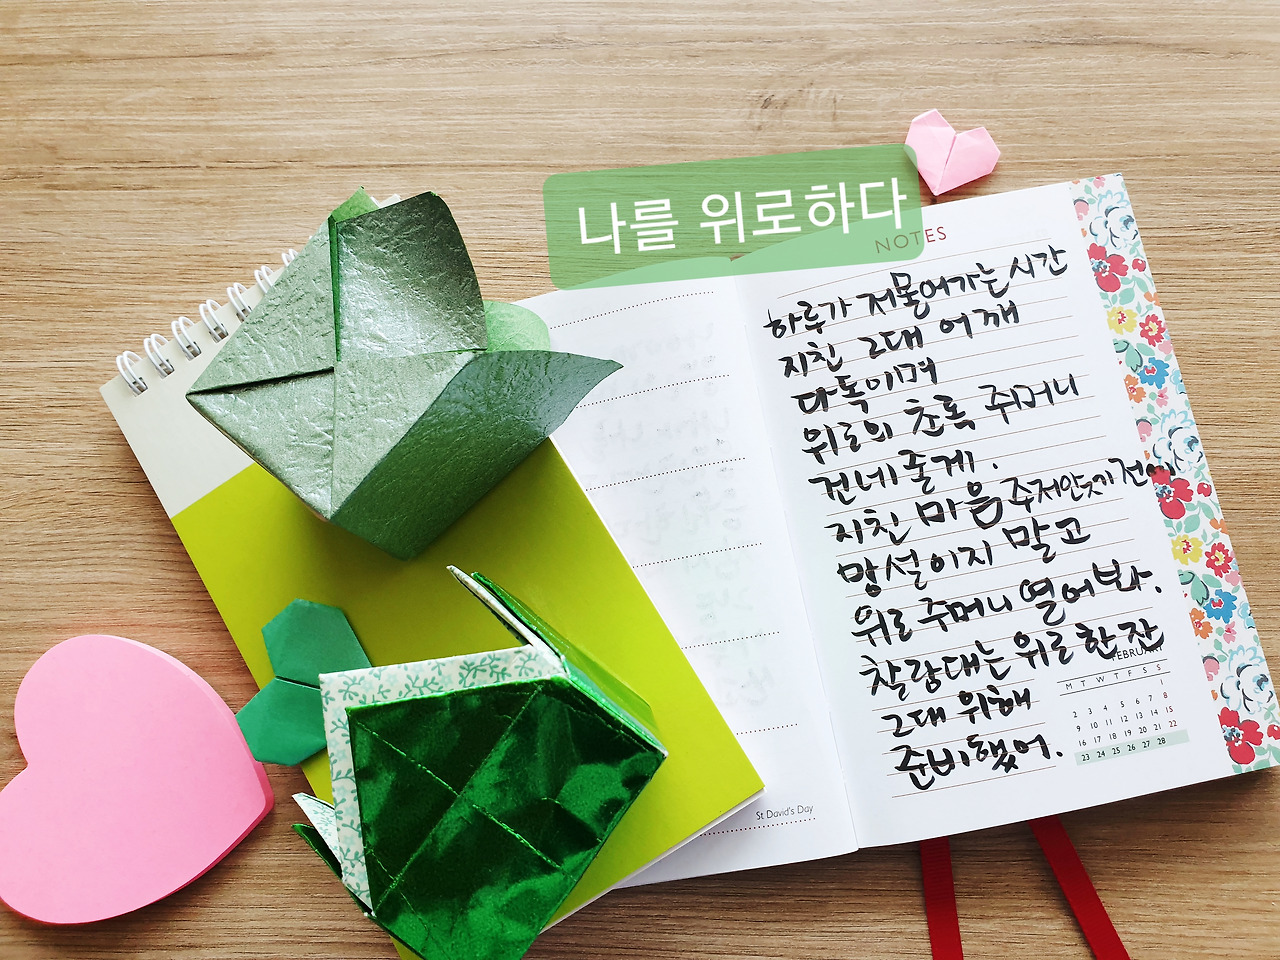 나를 위로하다
NOTES
하루가 저물어가는 시간
지친 그대 어깨
다독이며
위로의 초록 주머니
건네줄게.
지친 마음 주저앉기 전에
망설이지 말고
위로 주머니 열어봐.
찰랑대는 위로 한 잔
그대 위해
준비했어.
FEBRUARY
M T W T F S S
1
2 3 4 5 6 7 8
9 10 11 12 13 14 15
16 17 18 19 20 21 22
23 24 25 26 27 28
St David's Day